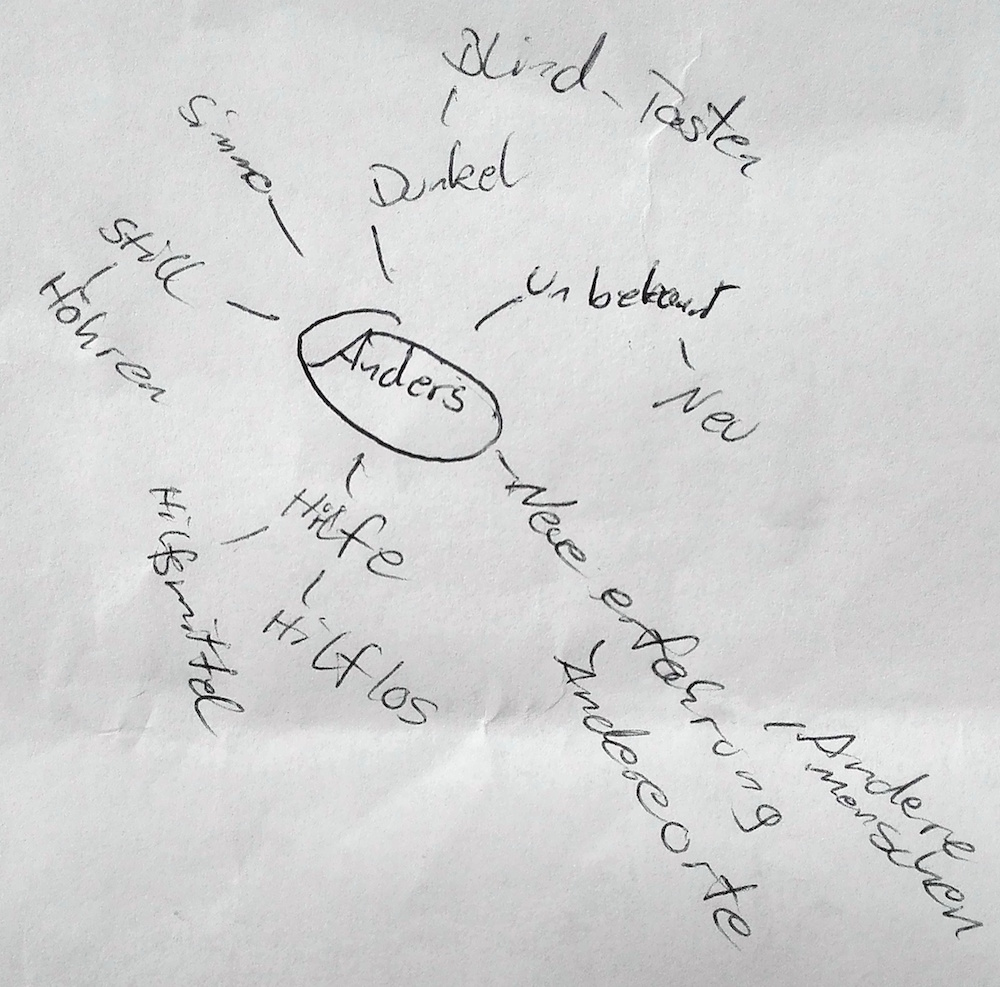 Blind - Tasten
Dunkel
Sinne
Still
Höhren
Unbekant
Neu
Anders
Neue erfahrung
Andere orte
Andere
menschen
Hilfe
Hilfsmittel
Hilflos